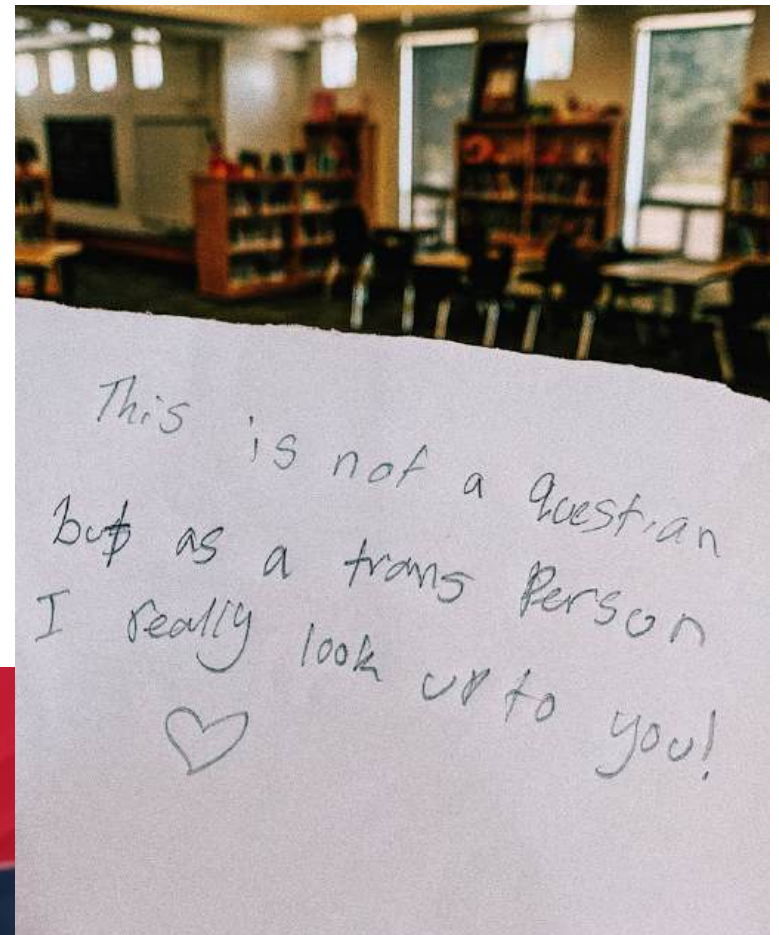 This is not a question
but as a trans Person
I really look up to you!
♡